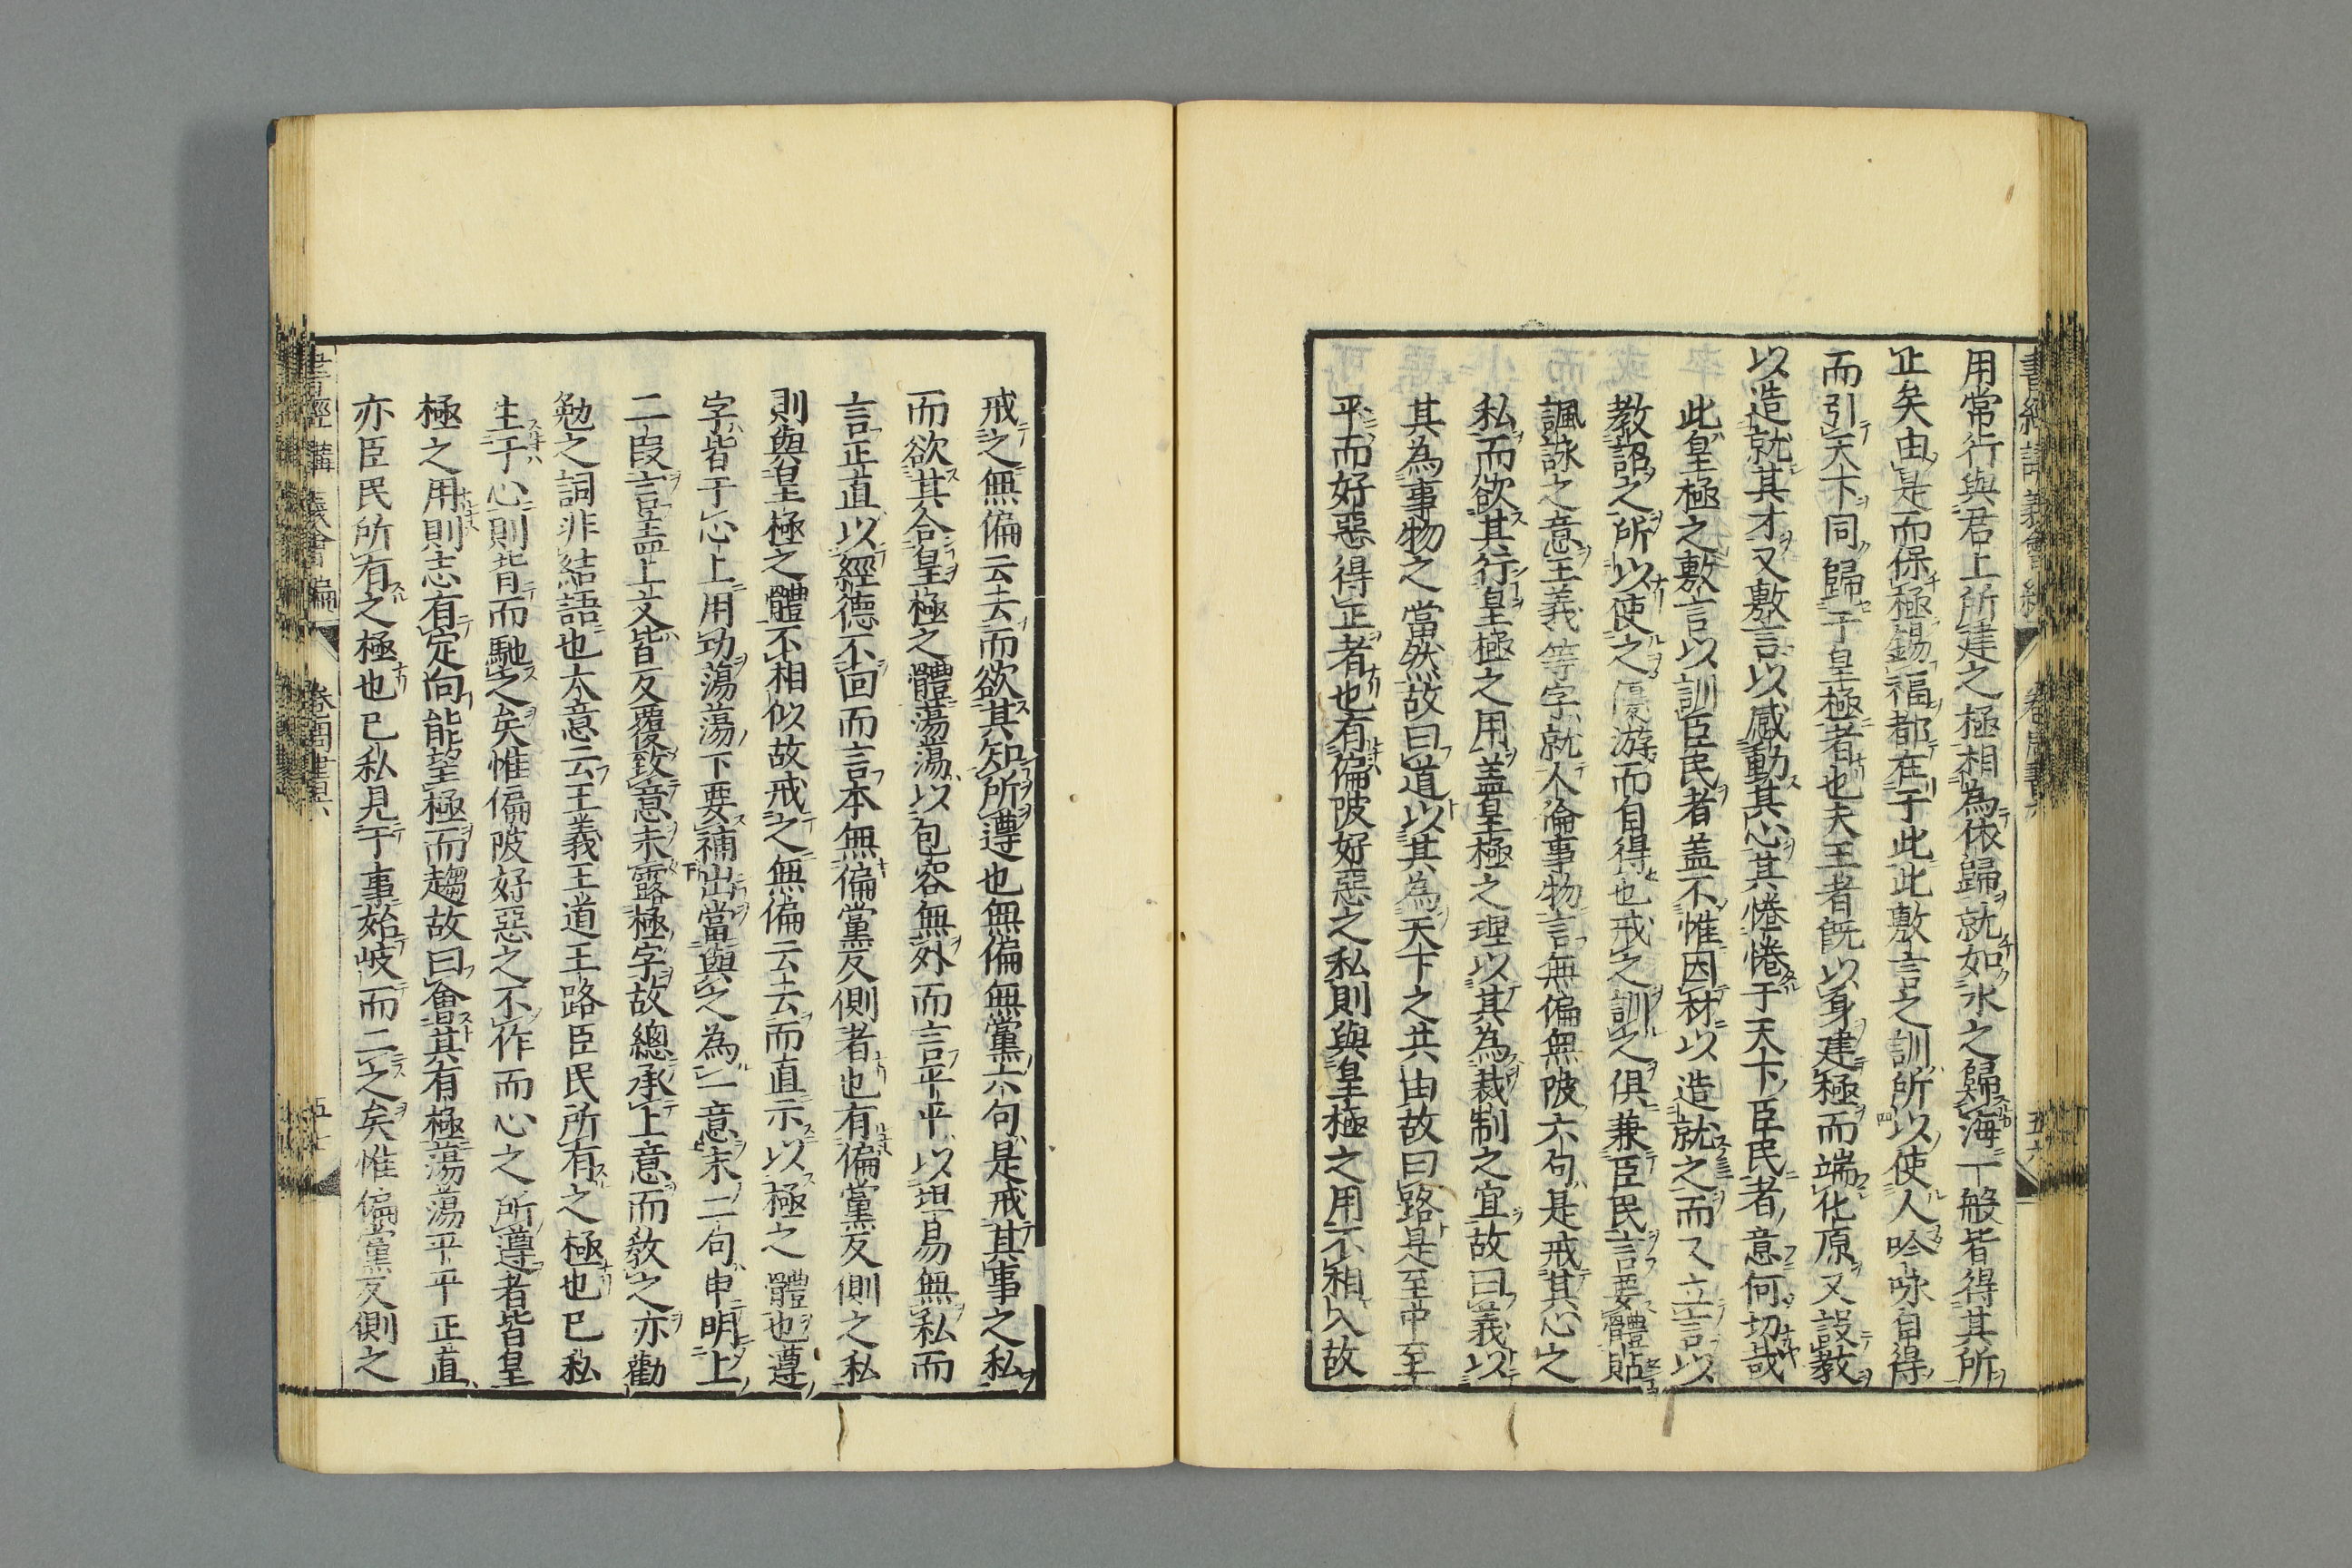 用常行與君上所建之極相為依歸就如水之歸海一般皆得其所
正矣由是而保極錫福都在于此此敷言之訓所以使人吟咏自得
而引天下同歸于皇極者也夫王者既以身建極而端化原又設教
以造就其才又敷言以感動其心其惓惓于天下臣民者意何切哉
此皇極之敷言以訓臣民者蓋不惟因材以造就之而又立言以
教詔之所以使之優游而自得也戒之訓之俱兼臣民言要體貼
諷詠之意王義等字就人倫事物言無偏無陂六句是戒其心之
私而欲其行皇極之用蓋皇極之理以其為裁制之宜故曰義以
其為事物之當然故曰道以其為天下之共由故曰路是至中至
平而好惡得正者也有偏陂好惡之私則與皇極之用不相入故
戒之無偏云云而欲其知所遵也無偏無黨六句是戒其事之私
而欲其合皇極之體蕩蕩以包容無外而言平平以坦易無私而
言正直以經德不回而言本無偏黨反側者也有偏黨反側之私
則與皇極之體不相似故戒之無偏云云而直示以極之體也遵
字皆于心上用功蕩蕩下要補出當與之為一意末二句申明上
二段言皇蓋上文皆反覆致意未露極字故總承上意而敎之亦勸
勉之詞非結語也大意云王義王道王路臣民所有之極也已私
生于心則背而馳之矣惟偏陂好惡之不作而心之所遵者皆皇
極之用則志有定向能望極而趨故曰會其有極蕩蕩平平正直
亦臣民所有之極也已私見于事始岐而二之矣惟偏黨反側之
書經講義會編
五十